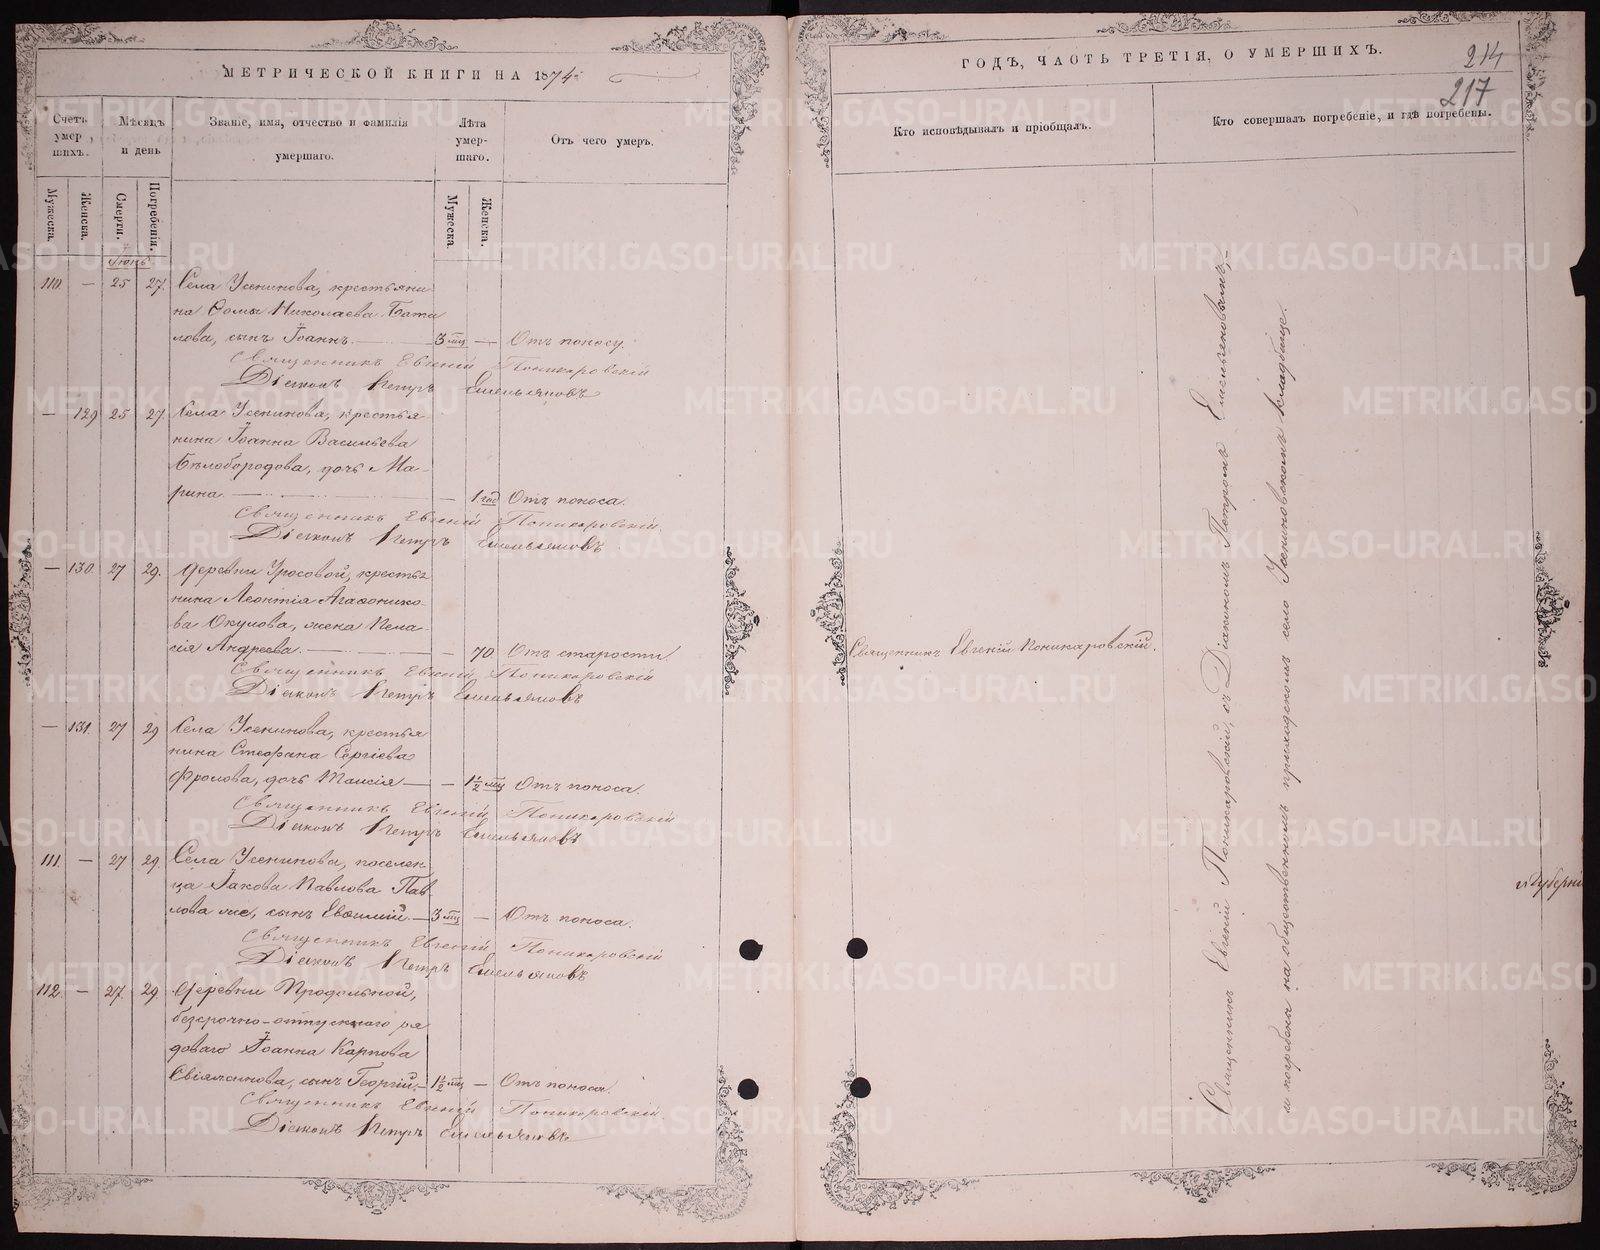 МЕТРИЧЕСКОЙ КНИГИ НА 1874
Счетъ умершихъ.
Мѣсяцъ и день
Званіе, имя, отчество и фамилія умершаго.
Лѣта умершаго.
Отъ чего умеръ.
Мужеска.
Женска.
Смерти.
Погребенія.
Мужеска
Женска.
110. — 25 27. Села Усенинова, крестьяни-
на Ѳомы Николаева Бата
лова, сынъ Іоаннъ. 3 мц — Отъ поносу.
Священникъ Евгеній Поникаровскій
Діаконъ Петръ Емельяновъ
— 129 25 27. Села Усенинова, крестья-
нина Іоанна Васильева
Бѣлобородова, дочь Ма-
рина. — 1 год Отъ поноса.
Священникъ Евгеній Поникаровскій
Діаконъ Петръ Емельяновъ
— 130. 27 29. Деревни Уросовой, крестья
нина Леонтія Агаѳонико-
ва Окулова, жена Пела-
гія Андреева. — 70 Отъ старости
Священникъ Евгеній Поникаровскій
Діаконъ Петръ Емельяновъ
— 131. 27 29 Села Усенинова, крестья
нина Стефана Сергіева
Фролова, дочь Таисія — — 1½ мц Отъ поноса.
Священникъ Евгеній Поникаровскій
Діаконъ Петръ Емельяновъ
111. — 27 29. Села Усенинова, поселен-
ца Іакова Павлова Пав
лова же, сынъ Евѳимій. — 3 мц — Отъ поноса.
Священникъ Евгеній Поникаровскій
Діаконъ Петръ Емельяновъ
112. — 27. 29 Деревни Продольной,
безсрочно-отпускнаго ря
доваго Іоанна Карпова
сынъ Георгій. — 1½ мц — Отъ поноса.
Священникъ Евгеній Поникаровскій
Діаконъ Петръ Емельяновъ
ГОДЪ, ЧАСТЬ ТРЕТІЯ, О УМЕРШИХЪ.
214
217
Кто исповѣдывалъ и пріобщалъ.
Кто совершалъ погребеніе, и гдѣ погребены.
Священникъ Евгеній Поникаровскій.
Священникъ Евгеній Поникаровскій, съ Діакономъ Петромъ Емельяновымъ,
и погребена на общественномъ приходскомъ село Усениновскомъ кладбище.
METRIKI.GASO-URAL.RU